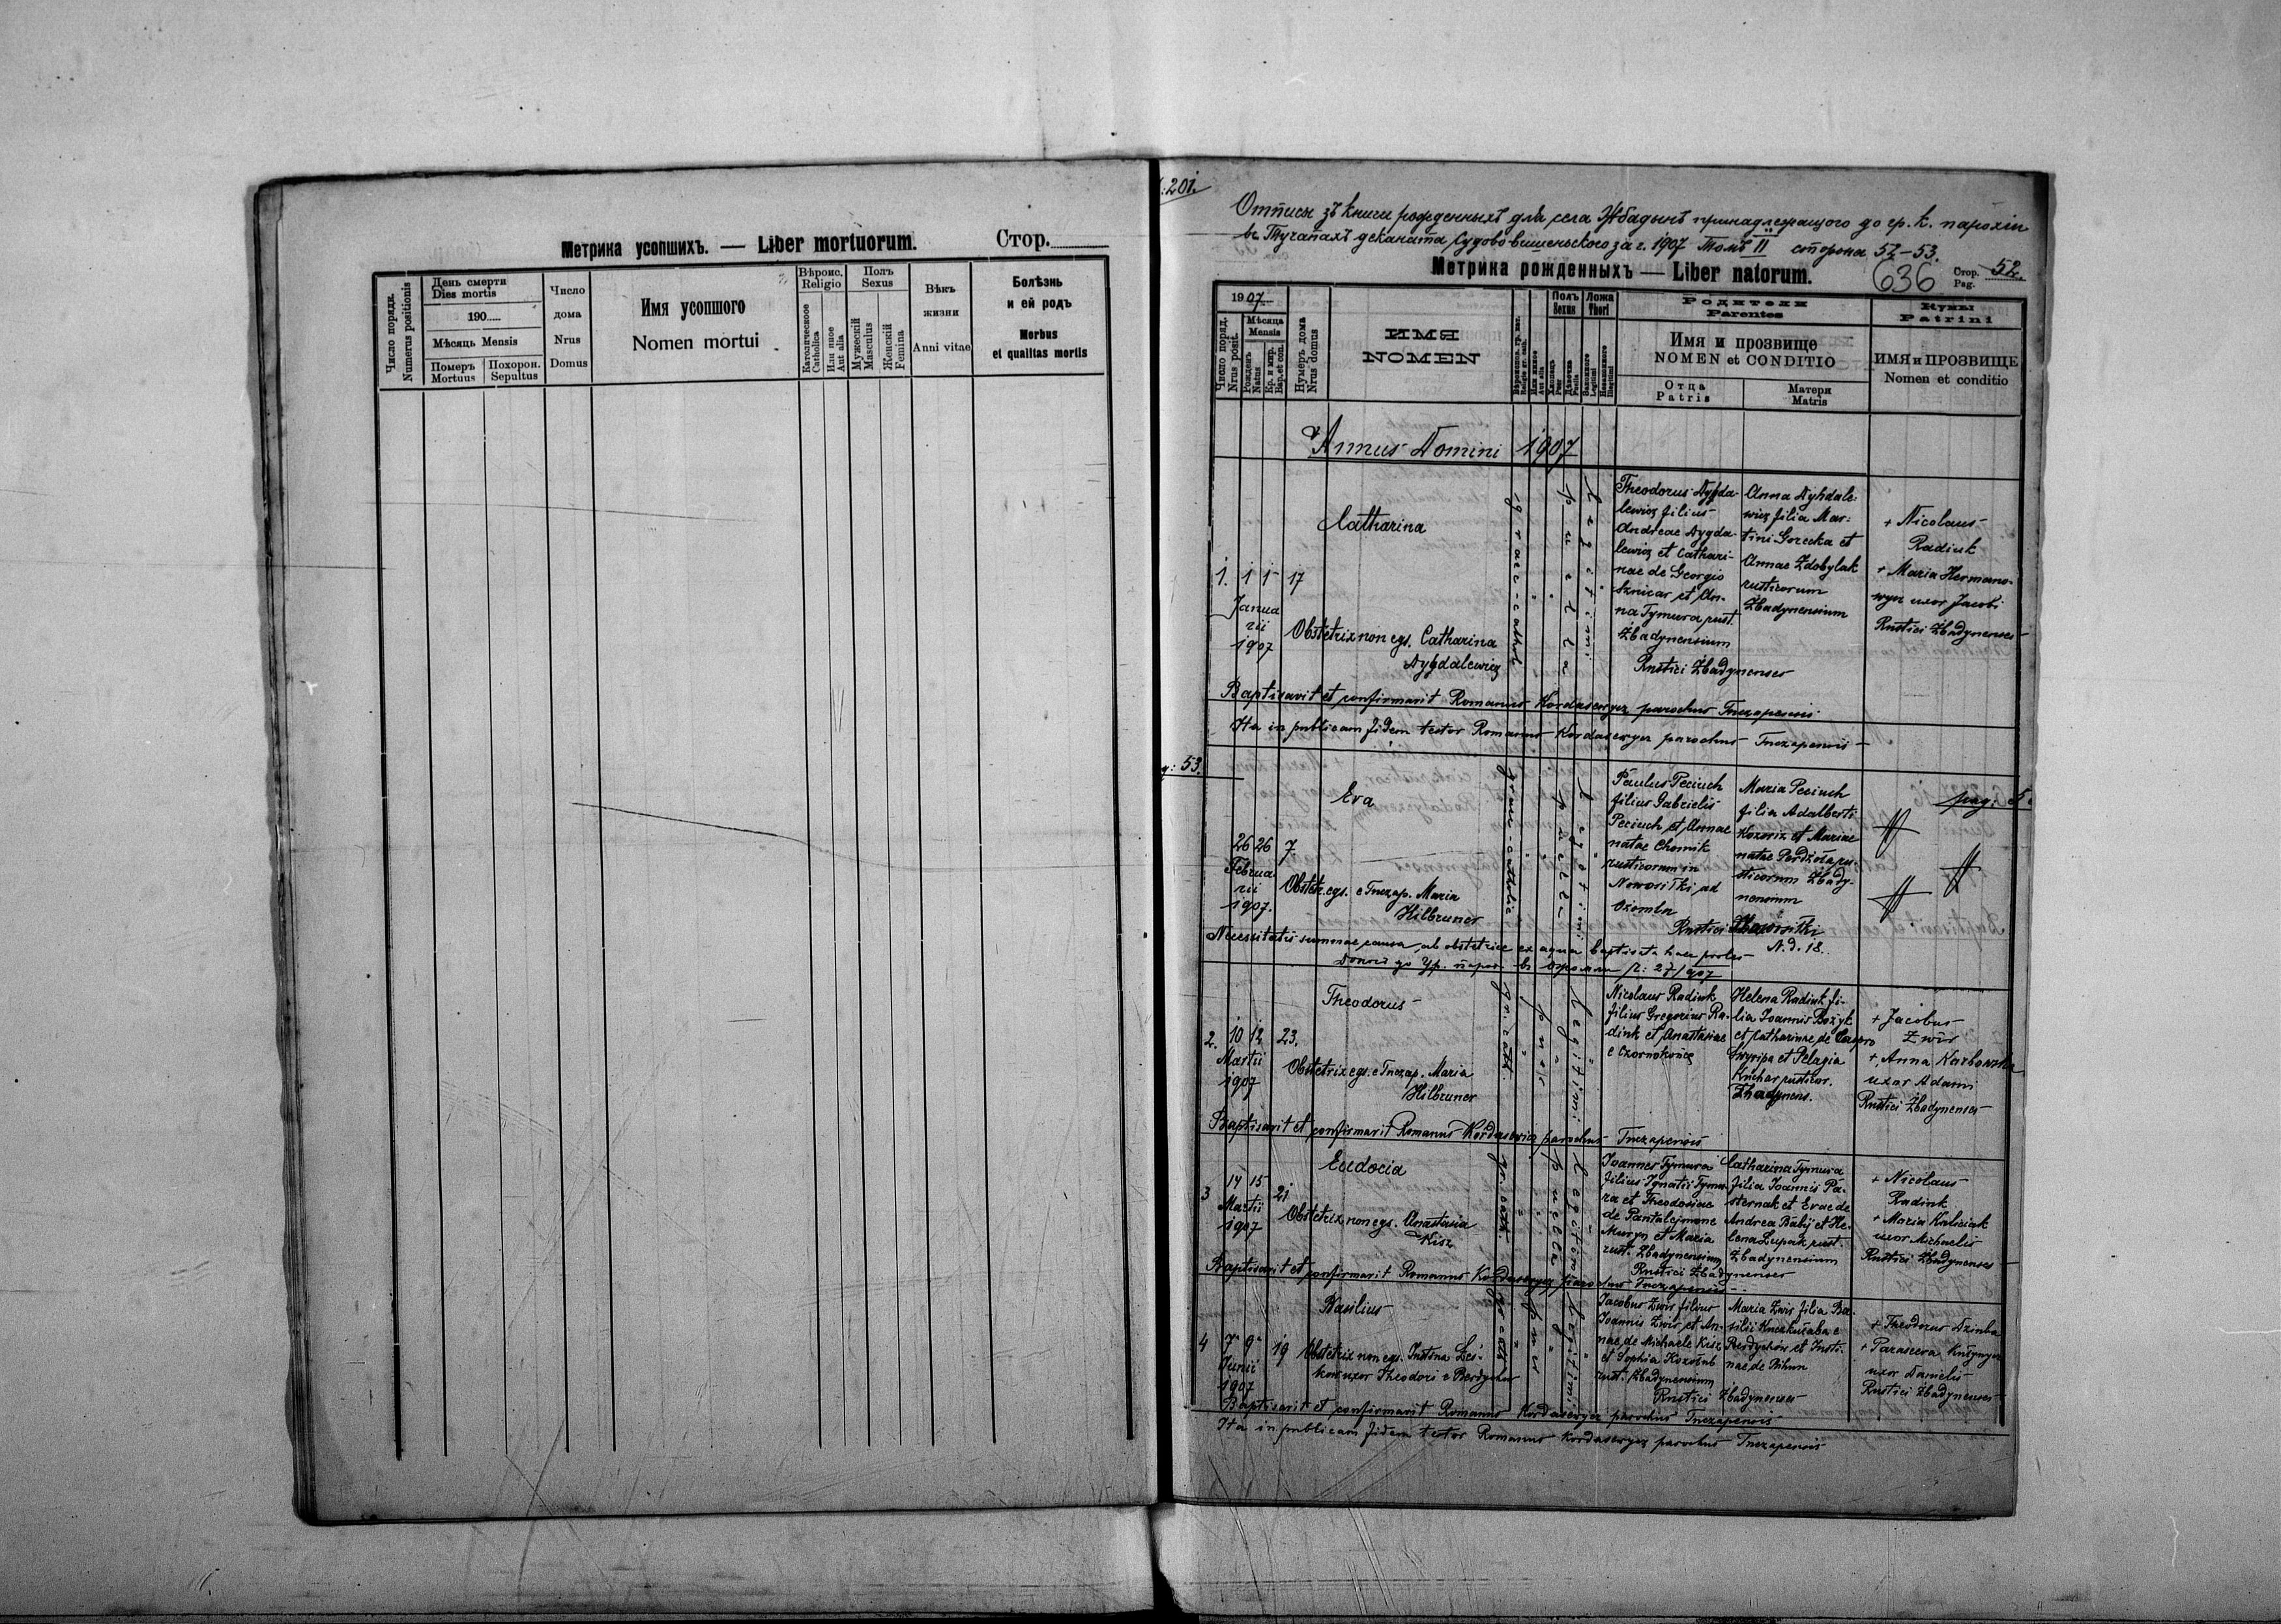 Метрика усопшихъ. — Liber mortuorum.
Стор.
Число порядк.
Numerus positionis
День смерти
Dies mortis
190
Мѣсяць Mensis
Померъ
Mortuus
Похорон.
Sepultus
Число
дома
Nrus
Domus
Имя усопшого
Nomen mortui
Вѣроис.
Religio
Католическоое
Catholica
Или иное
Aut alia
Полъ
Sexus
Мужескій
Masculus
Женскій
Femina
Вѣкъ
жизни
Anni vitae
Болѣзнь
и ей родъ
Morbus
et qualitas mortis
:201.
Отписы зъ книги рожденныхъ для села Жбадынъ принадлежащого до гр. к. парохіи
въ Тучапахъ деканата Судововишенского за г. 1907 Томъ II сторона 52-53.
Метрика рожденныхъ — Liber natorum.
636
Стор.
Pag.
52.
1907
Число поряд.
Nrus posit.
Мѣсяца
Mensis
Рожденъ
Natus
Кр. и мир.
Bap. et con.
Нумеръ дома
Nrus domus
ИМЯ
NOMEN
Или иное
Aut alia
Полъ
Sexus
Хлопецъ
Puer
Дѣвочка
Puella
Ложа
Thori
Законного
Legitimi
Незаконного
Illegitimi
Родители
Parentes
Имя и прозвище
NOMEN et CONDITIO
Отца
Patris
Матери
Matris
Кумы
Patrini
ИМЯ и ПРОЗВИЩЕ
Nomen et conditio
Annus Domini 1907
1. 1 1 17
Januarii
1907
Catharina
Obstetrix non egs. Catharina
Dygdalewicz
graec-cathol
puella
Legitimi
Theodorus Dygda-
lewicz filius
Andreae Dygda-
lewicz et Cathari-
nae de Georgio
et An-
na Tymura rust.
Żbadynensium
Anna Dyhdale-
wicz filia Mar-
tini Gorecka et
Annae Zdobylak
rusticorum
Żbadynensium
Rustici Żbadynenses
+ Nicolaus
Radiuk
+ Maria Hermano-
wyer uxor Jacobi
Rustici Żbadynenses
Baptisavit et confirmavit Romanus Kordasewycz parochus Tuczapensis
Ita in publicam fidem testor Romanus Kordasewycz parochus Tuczapensis
53.
pag: 5
26 26 7
Februarii
1907.
Eva
Obstetr. egs. e Tuczap. Maria
Hilbruner
graec-catholic
puella
Legitimi
Paulus Peciuch
filius Gabrielis
Peciuch et Annae
natae Chomik
rusticorum in
Nowosiłki ad
Ożomla
Maria Peciuch
filia Adalberti
Kozoriz et Mariae
natae
sticorum Żbady-
nensium
Rustici Nowosiłki
N. d. 18.
Necessitatis summae causa, ab obstetrice ex aqua baptisata haec proles
27/907
2. 10 12 23.
Martii
1907
Theodorus
Obstetrix egs. e Tuczap. Maria
Hilbruner
gr. cath.
puer
Legitimi
Nicolaus Radiuk
filius Gregorius Ra-
diuk et Anastasiae
e Czornokońce
Helena Radiuk fi-
lia Joannis Bożyk
et Catharinae de
et Pelagia
Kuchar rusticor.
Żbadynens.
+ Jacobus
Zwir
+ Anna Karbowska
uxor Adami
Rustici Żbadynenses
Baptisavit et confirmavit Romanus Kordasewicz parochus Tuczapensis
3 14 15 21
Martii
1907
Eudocia
Obstetrix non egs. Anastasia
Kisz
gr. cath.
puella
Legitimi
Joannes Tymura
filius Ignatii Tymu-
ra et Theodosiae
de Pantalejmone
Muryn et Maria
rust. Żbadynensium
Catharina Tymura
filia Joannis Pa-
sternak et Evae de
Andrea Babij et He-
lena Lupak rust.
Żbadynensium
Rustici Żbadynenses
+ Nicolaus
Radiuk
+ Maria Kaliciak
uxor Michaelis
Rustici Żbadynenses
Baptisavit et confirmavit Romanus Kordasewycz parochus Tuczapensis
4 7 9 19
Junii
1907
Basilius
Obstetrix non egs. Justina Leś-
kow uxor Theodori e Berdychów
gr-cath
puer
Legitimi
Jacobus Zwir filius
Joannis Zwir et An-
nae de Michaele Kisz
et Sophia Kozołub
rust. Żbadynensium
Maria Zwir filia Ba-
silii e
Berdychów et Justi-
nae de Rihun
Rustici Żbadynenses
+ Theodorus Dziuba
+ Parascewa
uxor Danielis
Rustici Żbadynenses
Baptisavit et confirmavit Romanus Kordasewycz parochus Tuczapensis
Ita in publicam fidem testor Romanus Kordasewycz parochus Tuczapensis